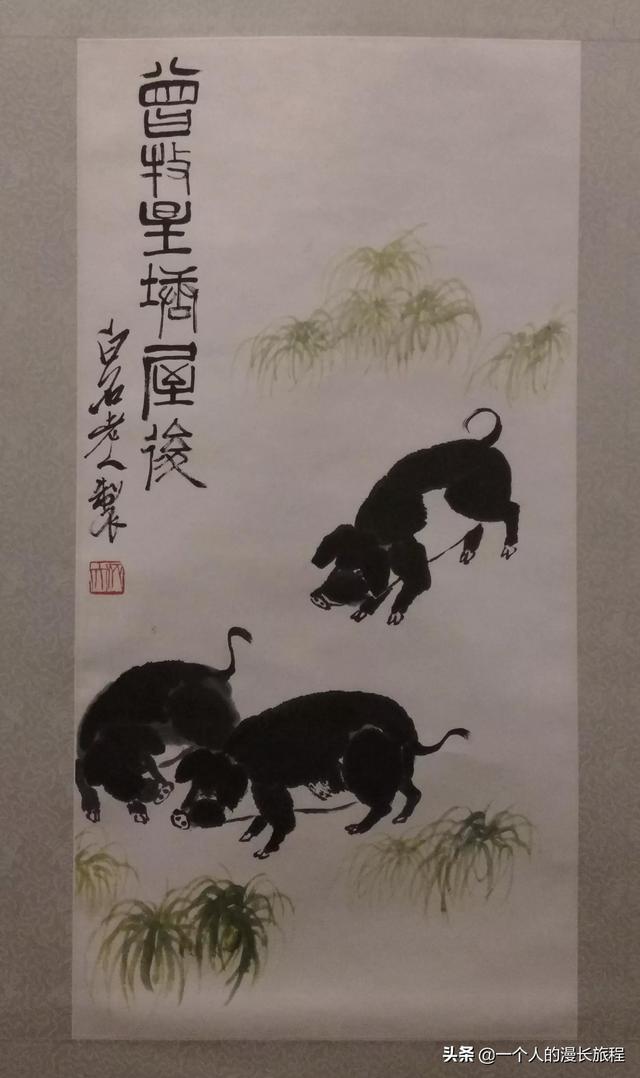 曾牧星塘屋後
白石老人製
头条 @一个人的漫长旅程